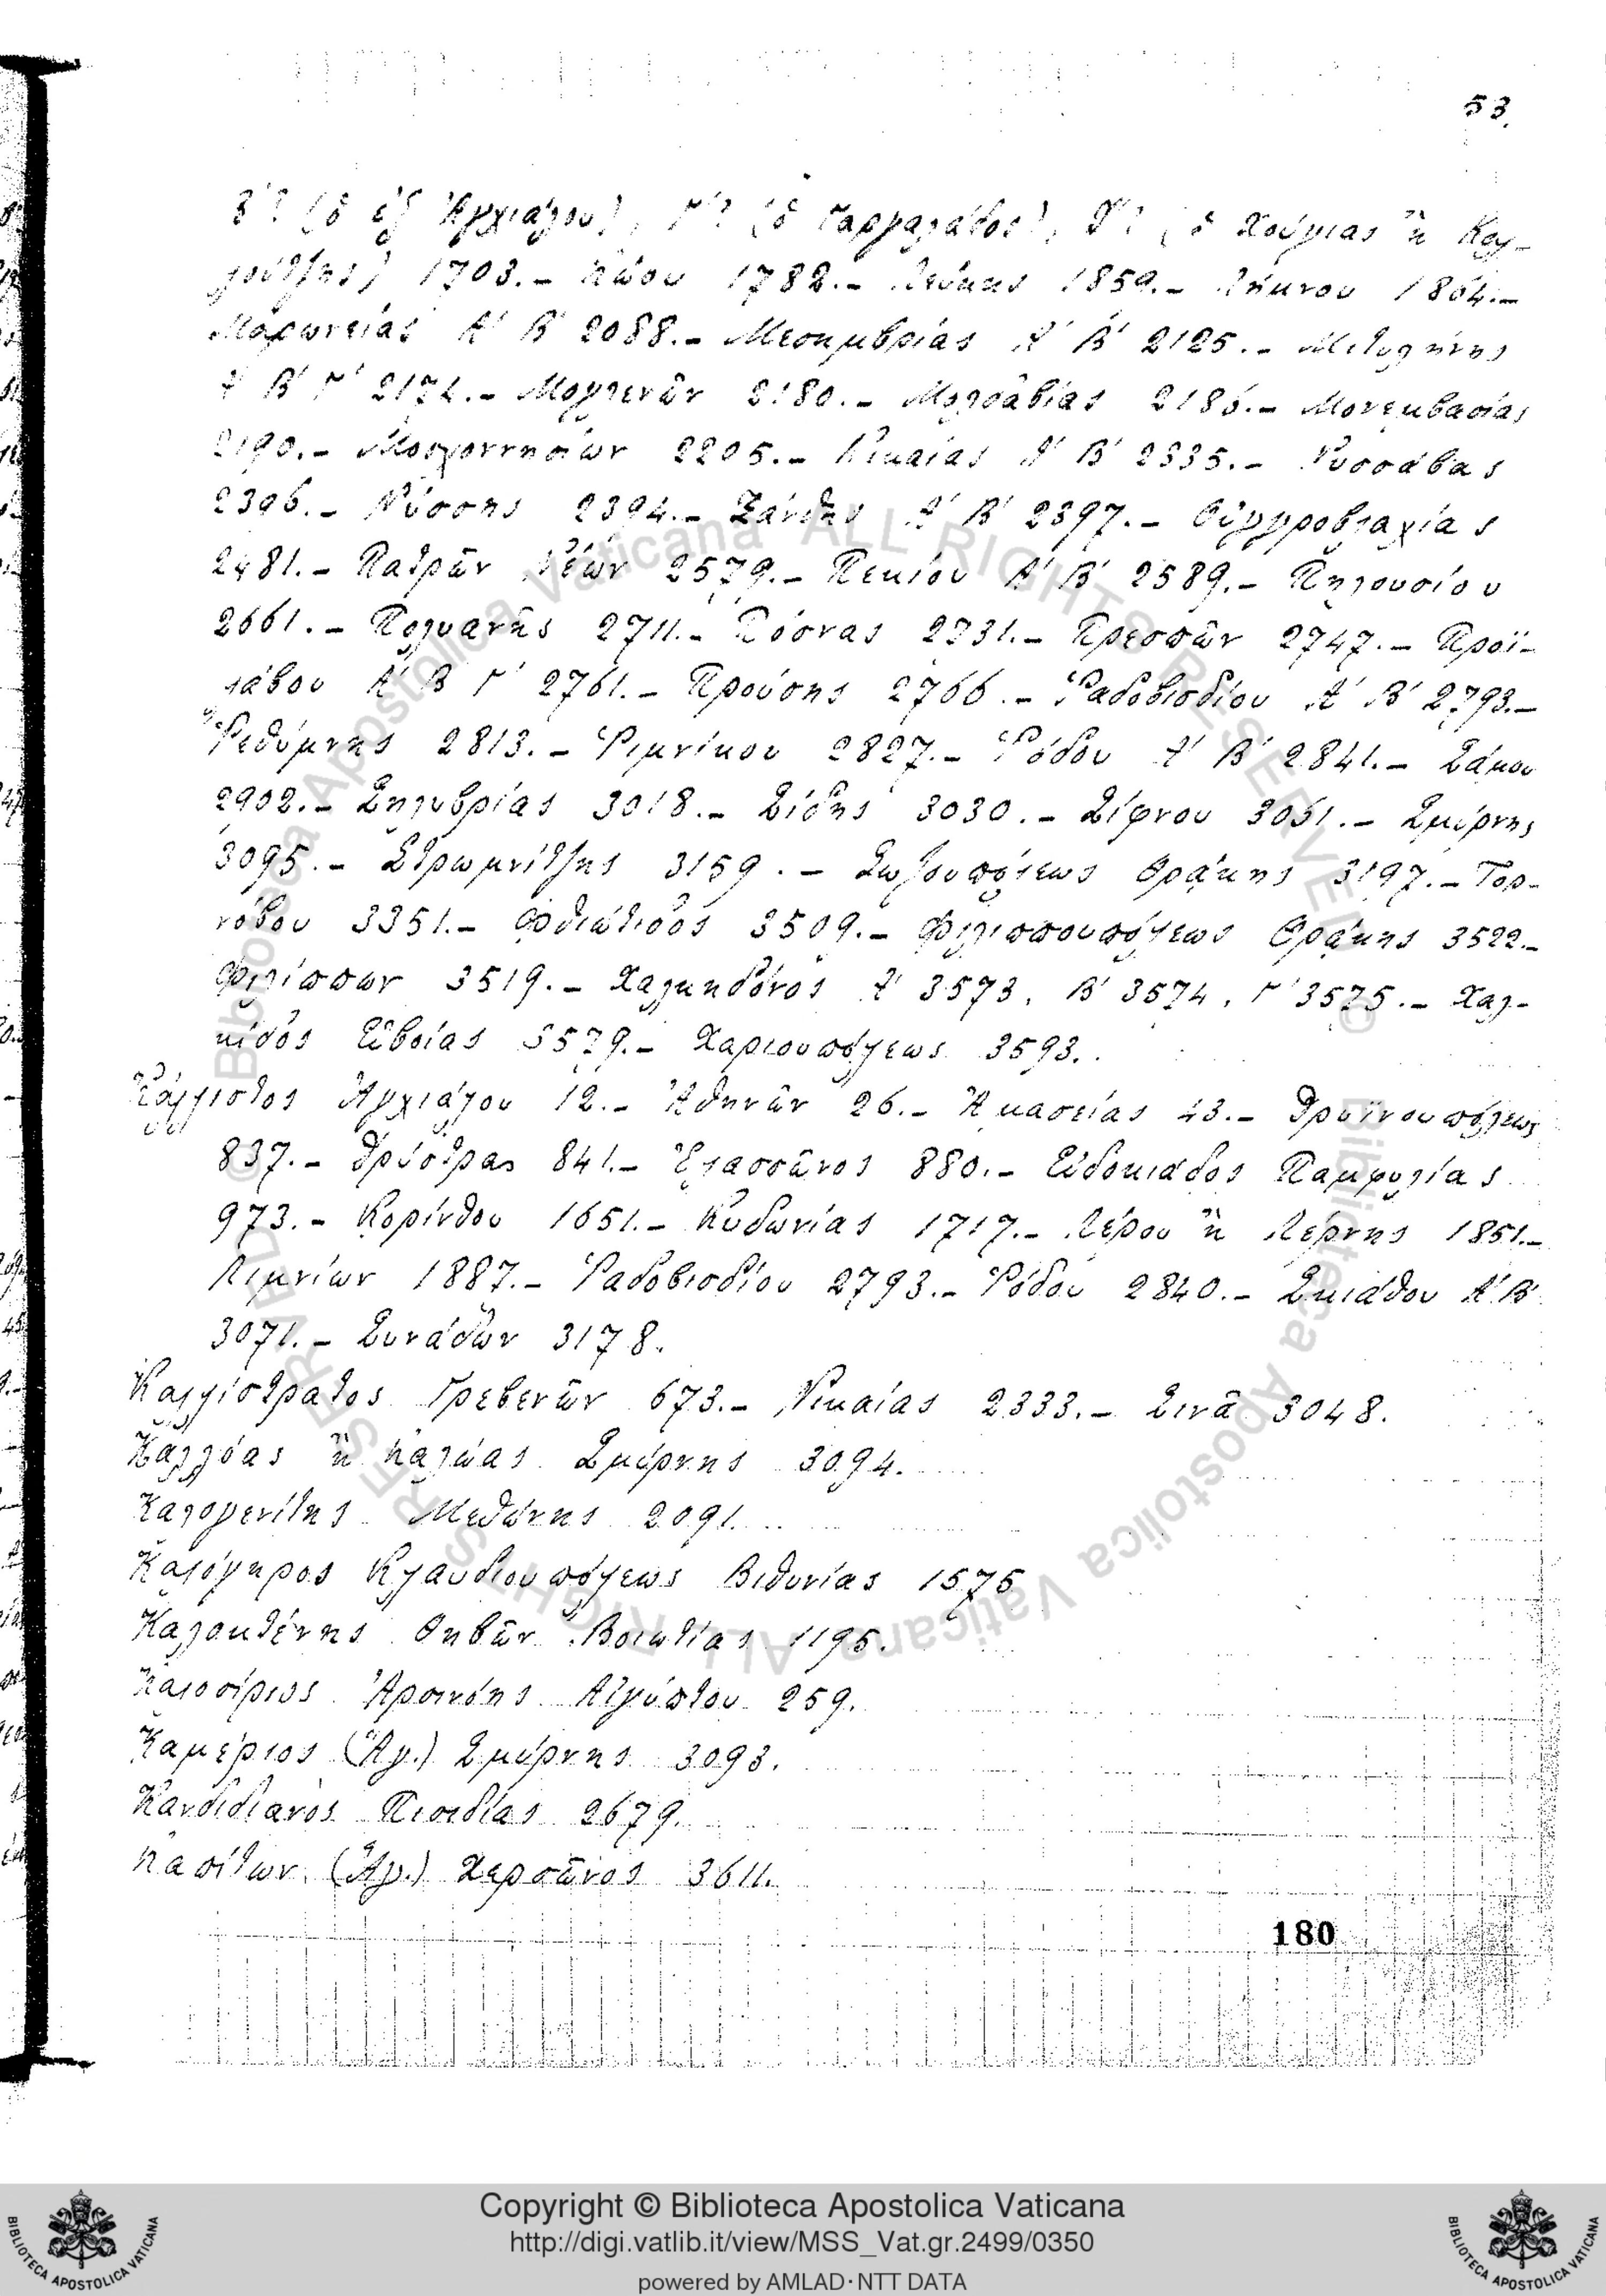 53.
Β΄? (ὁ ἐξ Ἀγχιάλου), Γ΄? (ὁ Γαργαλάδος), Δ΄? (ὁ Χούμιας ἢ Καλ-
λούτζης) 1703.– Κώου 1782.– Λεύκης 1859.– Λήμνου 1864.–
Μαρωνείας Α΄ Β΄ 2088.– Μεσημβρίας Α΄ Β΄ 2125.– Μιτυλήνης
Α΄ Β΄ Γ΄ 2172.– Μογλενῶν 2180.– Μολδαβίας 2186.– Μονεμβασίας
2190.– Μοσχονησίων 2205.– Νικαίας Α΄ Β΄ 2335.– Νυσσάβας
2396.– Νύσσης 2394.– Ξάνθης Α΄ Β΄ 2397.– Οὐγγροβλαχίας
2481.– Πατρῶν Νέων 2579.– Πεκίου Α΄ Β΄ 2589.– Πηλουσίου
2661.– Πολυανῆς 2711.– Πόσνας 2731.– Πρεσπῶν 2747.– Προϊ-
λάβου Α΄ Β΄ Γ΄ 2761.– Προύσης 2766.– Ῥαδοβισδίου Α΄ Β΄ 2793.–
Ῥεθύμνης 2813.– Ῥιμνίκου 2827.– Ῥόδου Α΄ Β΄ 2841.– Σάμου
2902.– Σηλυβρίας 3018.– Σίδης 3030.– Σίφνου 3051.– Σμύρνης
3095.– Στρωμνίτζης 3159.– Σωζουπόλεως Θράκης 3197.– Τορ-
νόβου 3351.– Φθιώτιδος 3509.– Φιλιππουπόλεως Θράκης 3522.–
Φιλίππων 3519.– Χαλκηδόνος Α΄ 3573, Β΄ 3574, Γ΄ 3575.– Χαλ-
κίδος Εὐβοίας 3579.– Χαριουπόλεως 3593.
Κάλλιστος Ἀγχιάλου 12.– Ἀθηνῶν 26.– Ἀμασείας 43.– Δρυϊνουπόλεως
837.– Δρύστρας 841.– Ἐλασσῶνος 880.– Εὐδοκιάδος Παμφυλίας
973.– Κορίνθου 1651.– Κυδωνίας 1717.– Λέρου ἢ Λέρνης 1851.–
Λιμνίων 1887.– Ῥαδοβισδίου 2793.– Ῥόδου 2840.– Σκιάθου Α΄ Β΄
3071.– Συνάδων 3178.
Καλλίστρατος Γρεβενῶν 673.– Νικαίας 2333.– Σινᾶ 3048.
Καλλόας ἢ Καλώας Σμύρνης 3094.
Καλογενίτης Μεθώνης 2091.
Καλόγηρος Κλαυδιουπόλεως Βιθυνίας 1575
Καλοκτένης Θηβῶν Βοιωτίας 1195.
Καλοσίριος Ἀρσινόης Αἰγύπτου 259.
Καμέριος (Ἅγ.) Σμύρνης 3093.
Κανδιδιανὸς Πισιδίας 2679.
Καπίτων (Ἅγ.) Χερσῶνος 3611.
180
Copyright © Biblioteca Apostolica Vaticana
http://digi.vatlib.it/view/MSS_Vat.gr.2499/0350
powered by AMLAD·NTT DATA